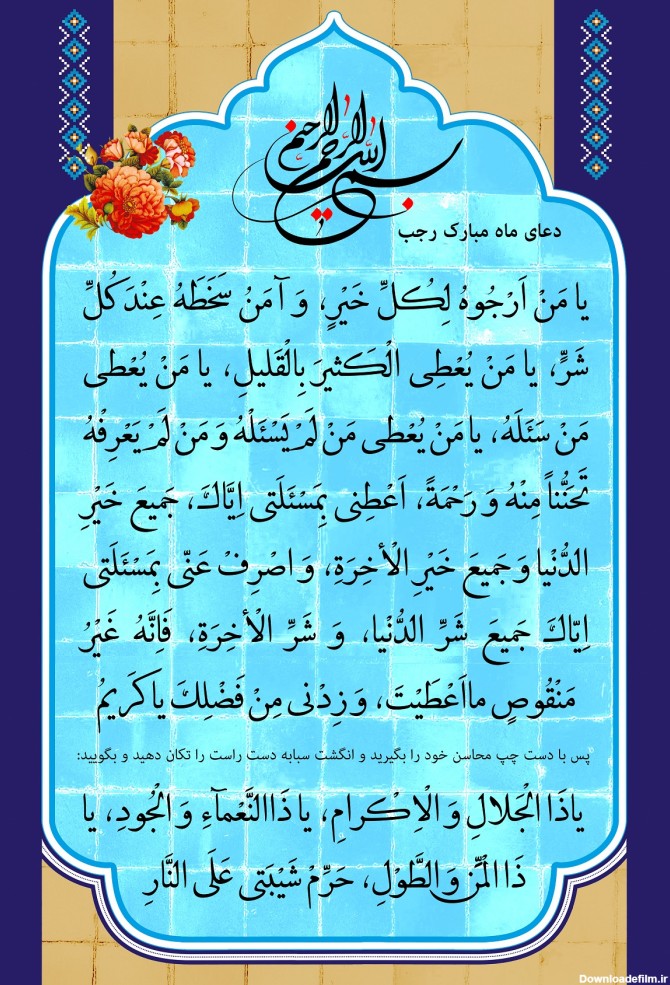 بسم الله الرحمن الرحیم
دعای ماه مبارک رجب
یا مَنْ اَرْجُوهُ لِکُلِّ خَیْرٍ، وَ آمَنُ سَخَطَهُ عِنْدَ کُلِّ
شَرٍّ، یا مَنْ یُعْطِی الْکَثیرَ بِالْقَلیلِ، یا مَنْ یُعْطی
مَنْ سَئَلَهُ، یا مَنْ یُعْطی مَنْ لَمْ یَسْئَلْهُ وَ مَنْ لَمْ یَعْرِفْهُ
تَحَنُّناً مِنْهُ وَ رَحْمَةً، اَعْطِنی بِمَسْئَلَتی اِیَّاكَ، جَمیعَ خَیْرِ
الدُّنْیا وَ جَمیعَ خَیْرِ الْأخِرَةِ، وَ اصْرِفْ عَنّی بِمَسْئَلَتی
اِیّاكَ جَمیعَ شَرِّ الدُّنْیا، وَ شَرِّ الْأخِرَةِ، فَاِنَّهُ غَیْرُ
مَنْقُوصٍ مااَعْطَیْتَ، وَ زِدْنی مِنْ فَضْلِكَ یا کَریمُ
پس با دست چپ محاسن خود را بگیرید و انگشت سبابه دست راست را تکان دهید و بگویید:
یاذَا الْجَلالِ وَ الْاِکْرامِ، یا ذَاالنَّعْمآءِ وَ الْجُودِ، یا
ذَا الْمَنِّ وَ الطَّوْلِ، حَرِّمْ شَیْبَتی عَلَی النَّارِ
Downloadefilm.ir